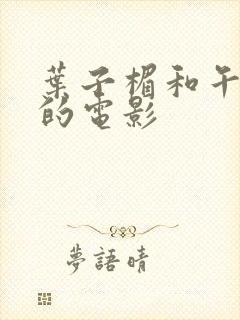 葉子楣和午
的電影
夢語晴